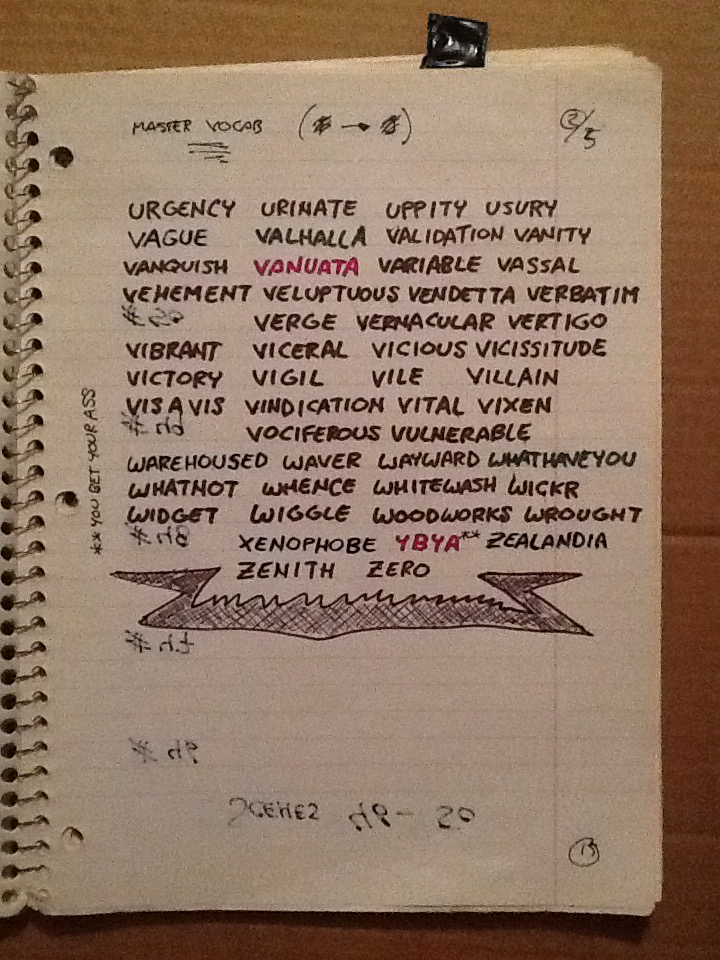 MASTER VOCAB
2/5
URGENCY URINATE UPPITY USURY
VAGUE VALHALLA VALIDATION VANITY
VANQUISH VANUATA VARIABLE VASSAL
VEHEMENT VELUPTUOUS VENDETTA VERBATIM
VERGE VERNACULAR VERTIGO
VIBRANT VICERAL VICIOUS VICISSITUDE
VICTORY VIGIL VILE VILLAIN
VIS A VIS VINDICATION VITAL VIXEN
VOCIFEROUS VULNERABLE
WAREHOUSED WAVER WAYWARD WHATHAVEYOU
WHATNOT WHENCE WHITEWASH WICKR
WIDGET WIGGLE WOODWORKS WROUGHT
XENOPHOBE YBYA** ZEALANDIA
ZENITH ZERO
** YOU BET YOUR ASS